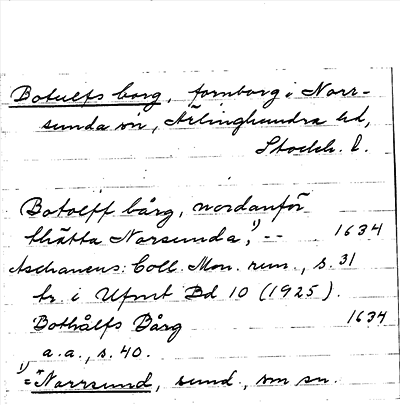 Botulfs borg, fornborg i Norr-
sunda sn, Ärlinghundra hd,
Stockh. l.
Botolff bårg, nordanför
thätta Norsunda,¹⁾ -- 1634
Aschaneus: Coll. Mon. run., s. 31
tr. i Ufmt Bd 10 (1925).
Bothålfs Bårg 1634
a.a., s. 40.
¹⁾ = *Norrsund, sund, om sn.